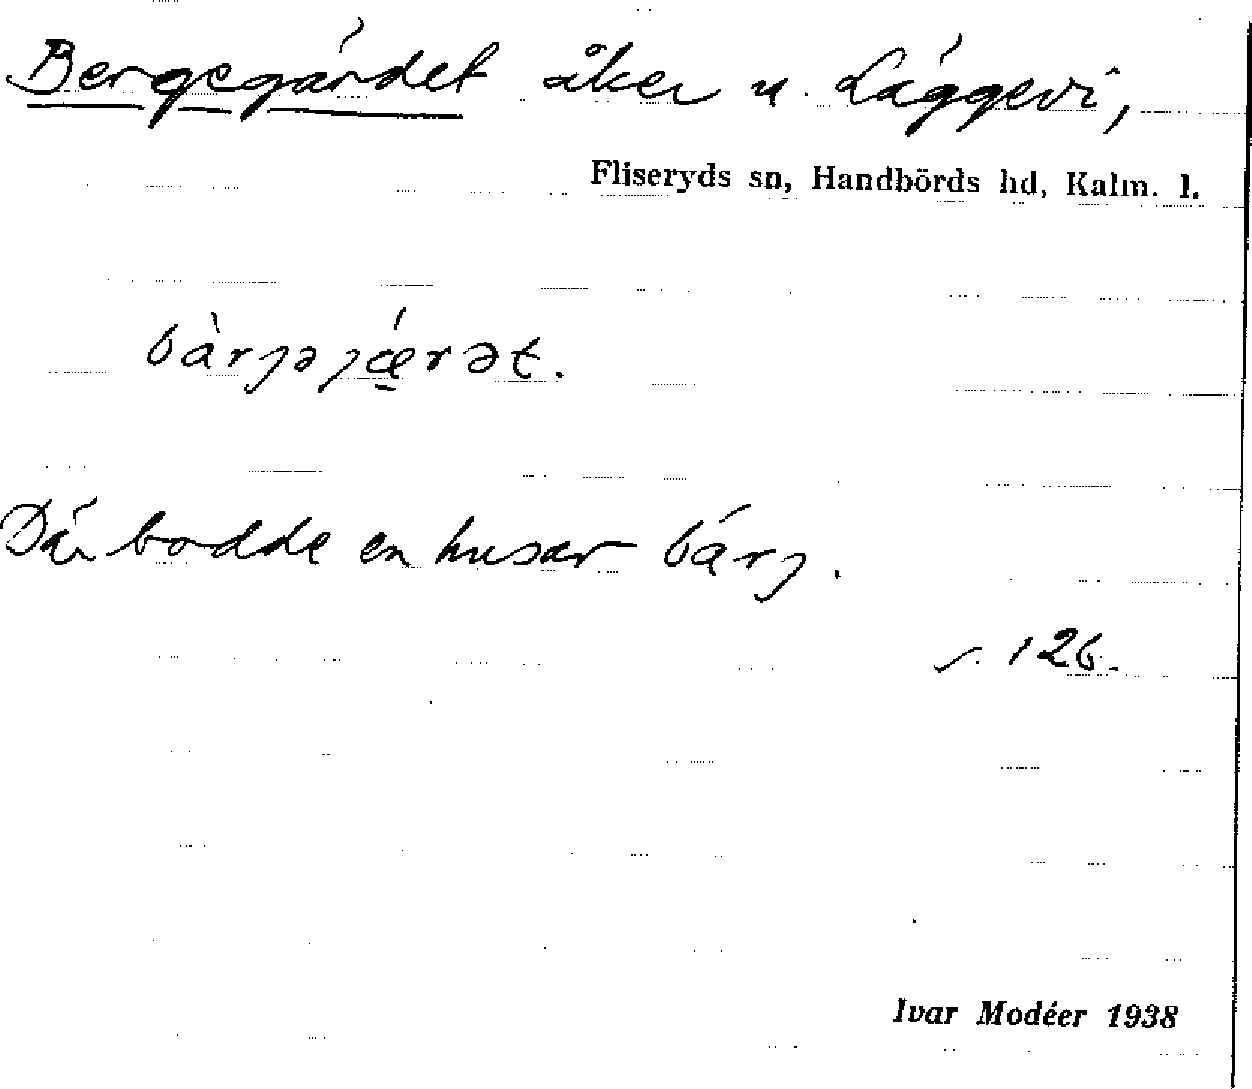 Bergegärdet åker u. Läggevi,
Fliseryds sn, Handbörds hd, Kalm. l.
bàrȷəȷǽ̠rət.
Där bodde en husar bárȷ.
s. 126.
Ivar Modéer 1938